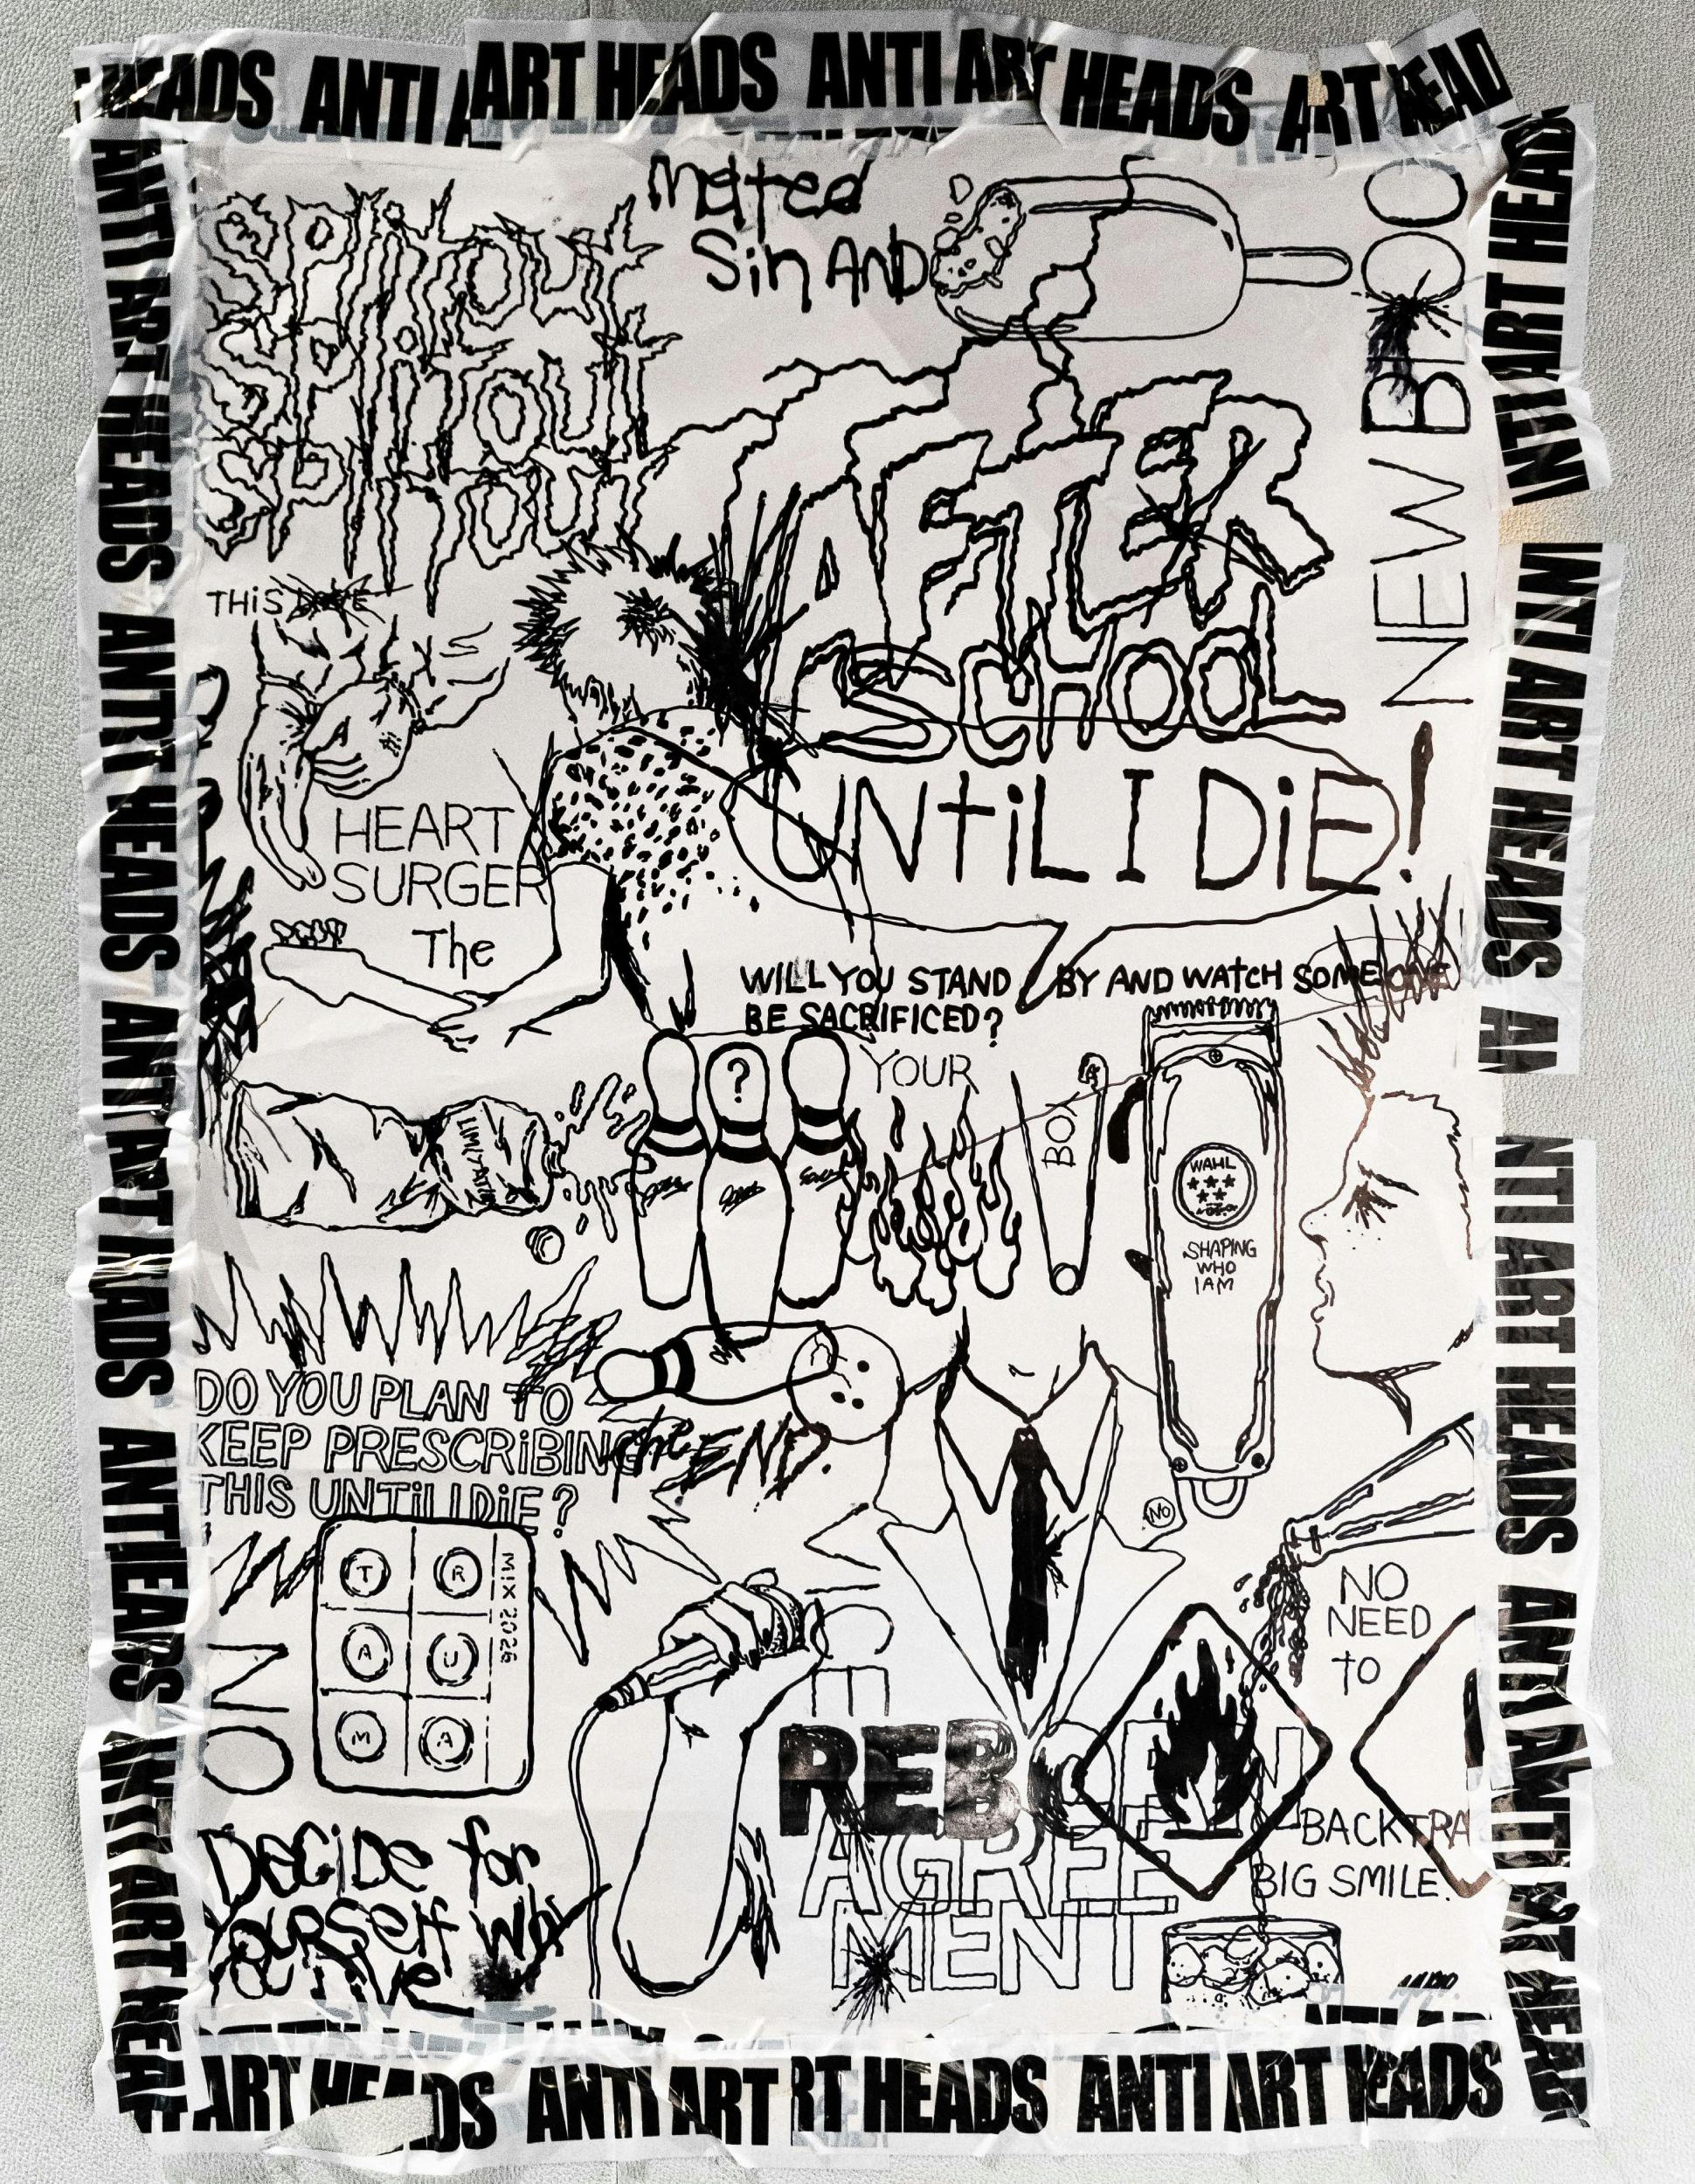 HEADS ANTI ART HEADS ANTI ART HEADS ART HEAD
ANTI ART HEADS ANTI ART HEADS ANTI ART HEADS ANTI HEADS ANTI ART HEA
ANTI ART HEAD
ANTI ART HEADS
NTI ART HEADS ANTI ANTI ART HEAD
Splitout
Splitout
Splitout
Mated
Sin AND
NEW
AFTER
SCHOOL
UNtiL I DiE!
THiS
HEART
SURGERY
The
WILL YOU STAND BY AND WAtcH SOMEONE
BE SACRIFICED?
?
YOUR
BOX
WAHL
SHAPING
WHO
I AM
DO YOU PLAN TO
KEEP PRESCRiBING
THIS UNTiL I DiE?
the END.
NO
T R
A U
M A
MIX 2026
NO
NO
NEED
to
REBORN
AGREE
MENT
BACKTRA
BIG SMILE.
DeCiDe for
yourself why
you live
ART HEADS ANTI ART RT HEADS ANTI ART HEADS